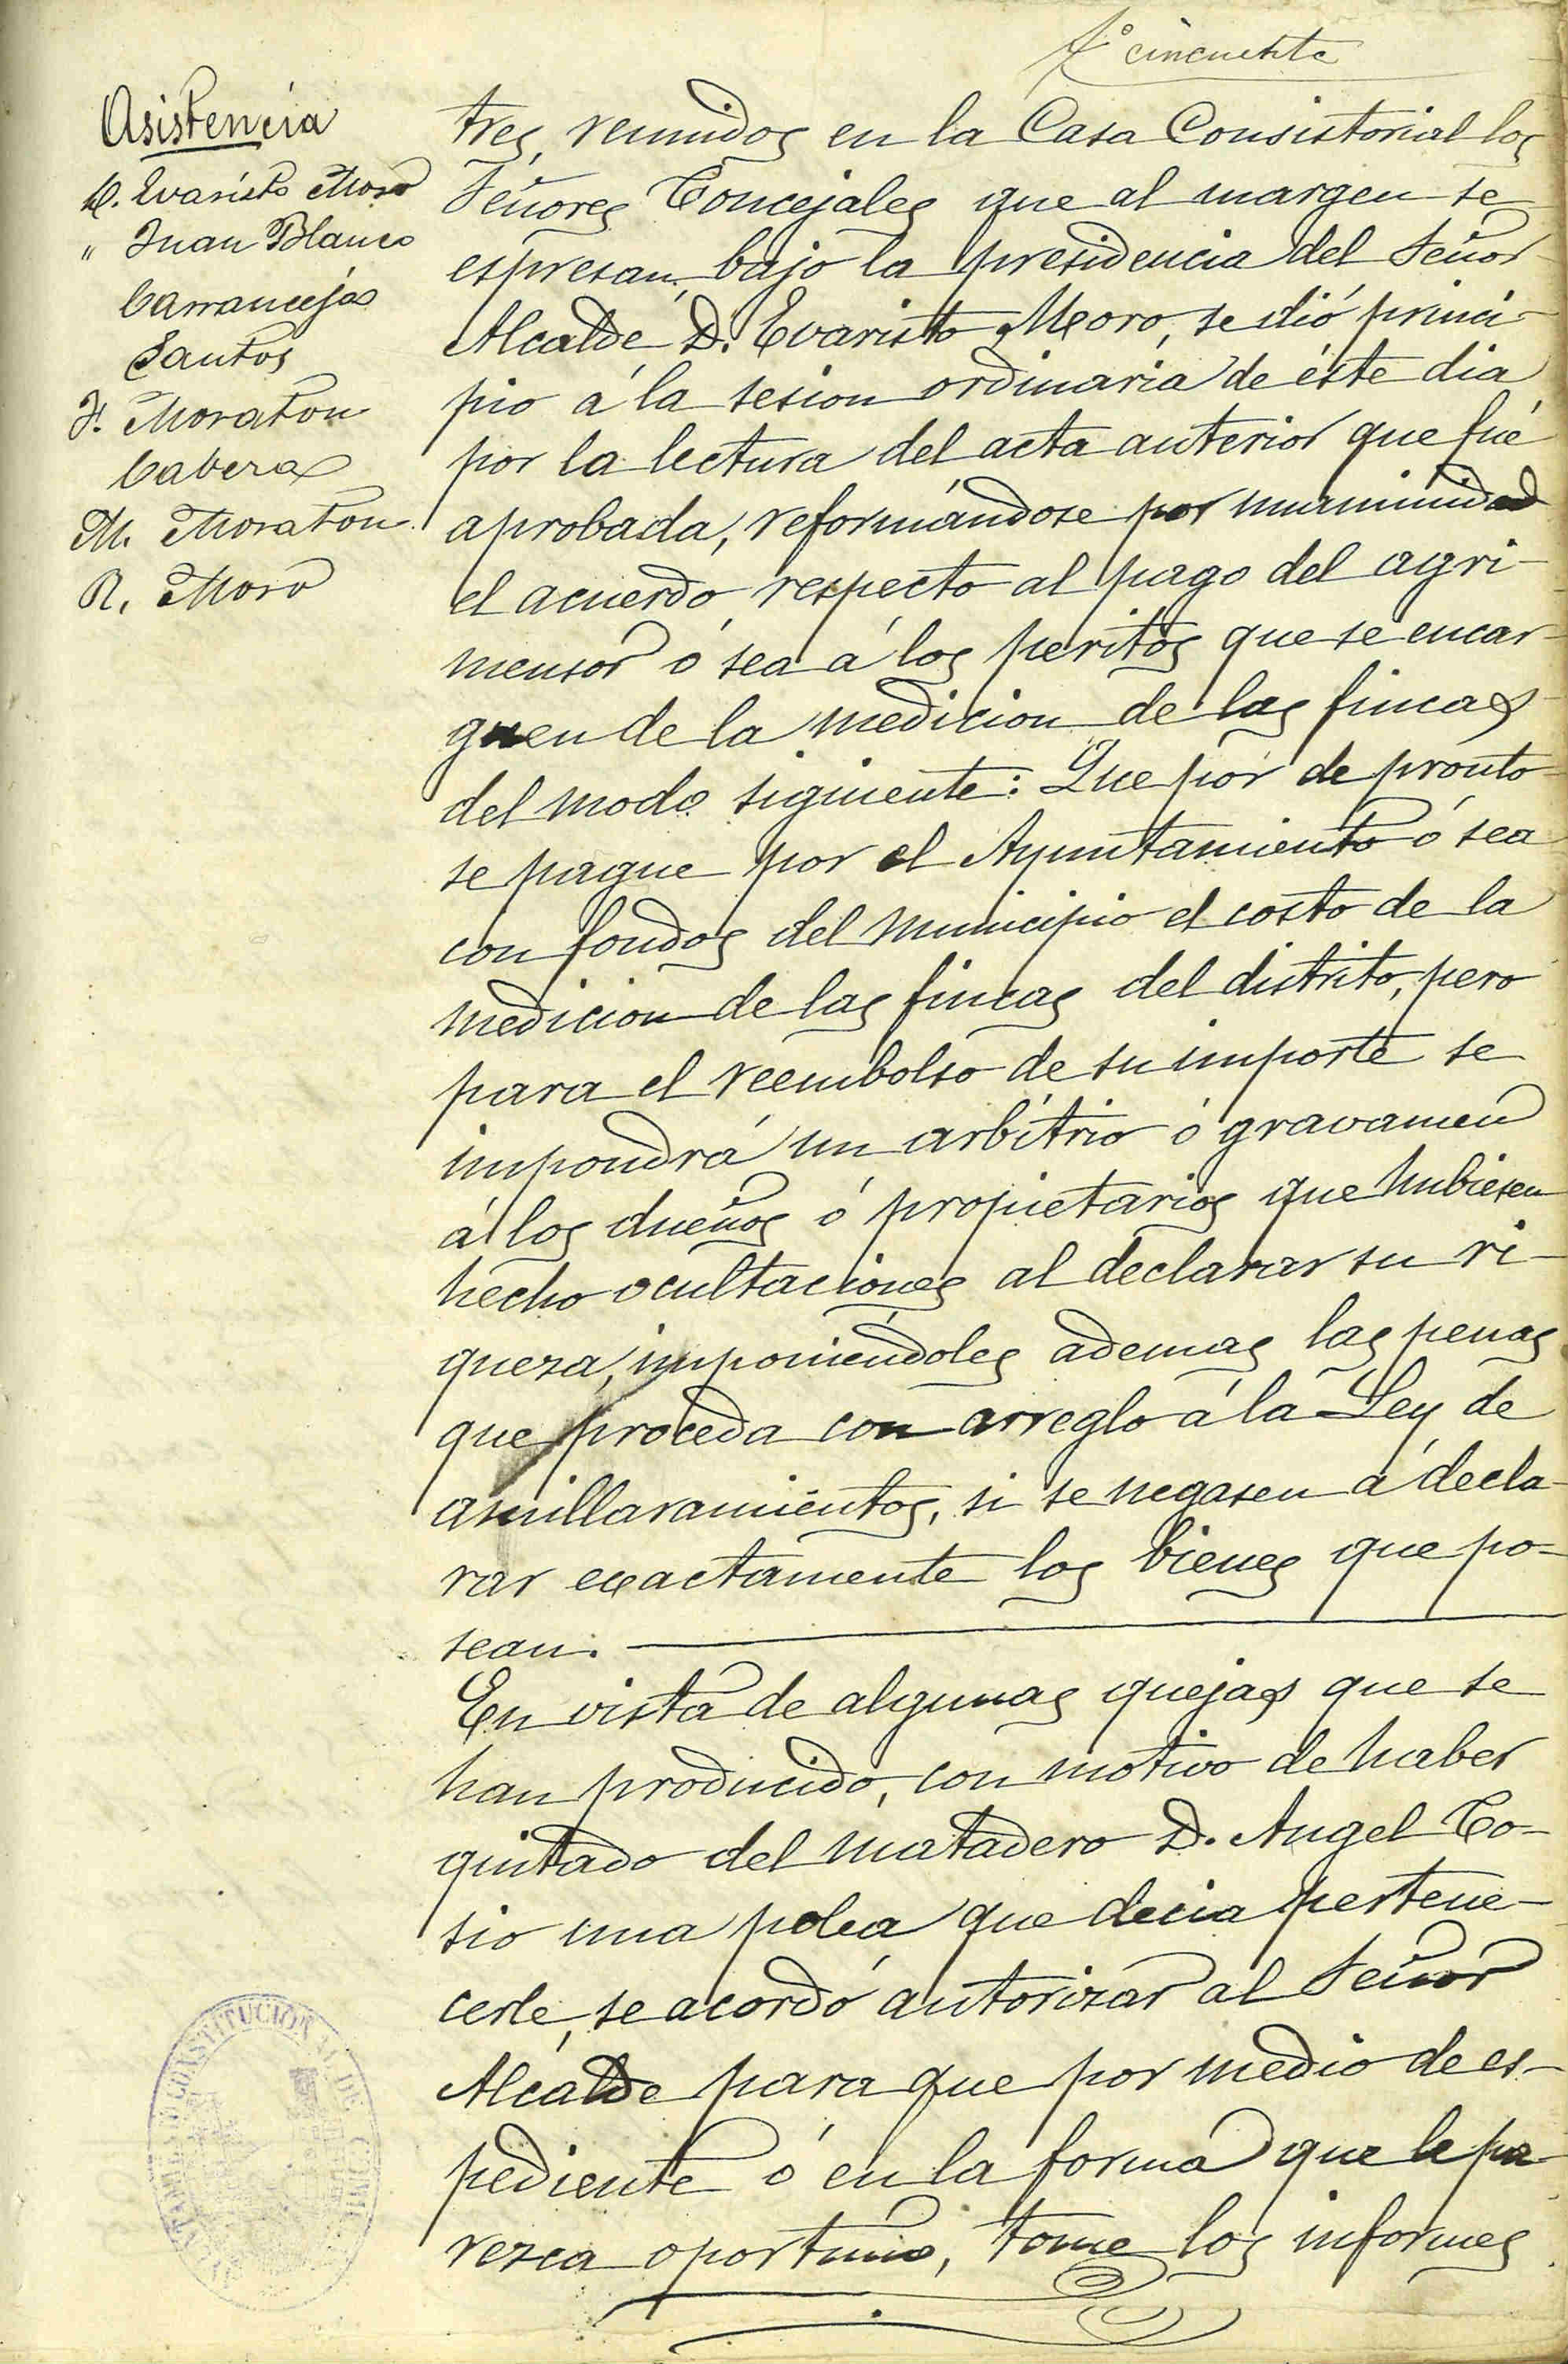 fº cincuenta
Asistencia
D. Evaristo Moro
" Juan Blanco
Carrancejas
Santos
F. Moraton
Cabeza
M. Moraton
R. Moro
tres, reunidos en la Casa Consistorial los
Señores Concejales que al margen se
espresan, bajo la presidencia del Señor
Alcalde D. Evaristo Moro, se dió princi-
pio á la sesion ordinaria de éste dia
por la lectura del acta anterior que fué
aprobada, reformándose por unanimidad
el acuerdo respecto al pago del agri-
mensor ó sea á los peritos que se encar-
guen de la medicion de las fincas
del modo siguiente: Que por de pronto
se pague por el Ayuntamiento ó sea
con fondos del Municipio el costo de la
medicion de las fincas del distrito, pero
para el reembolso de su importe se
impondrá un arbitrio ó gravamen
á los dueños ó propietarios que hubiesen
hecho ocultaciones al declarar su ri-
queza, imponiéndoles ademas las penas
que proceda con arreglo á la Ley de
amillaramientos, si se negasen á decla-
rar exactamente los bienes que po-
sean.
En vista de algunas quejas que se
han producido, con motivo de haber
quitado del matadero D. Angel Co-
sio una polea que decia pertene-
cerle, se acordó autorizar al Señor
Alcalde para que por medio de es-
pediente ó en la forma que le pa-
rezca oportuno, tome los informes
AYUNTAMIENTO CONSTITUCIONAL DE